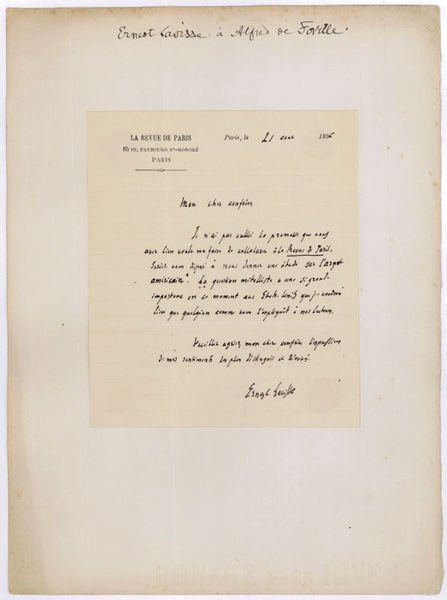 Ernest Lavisse à Alfred de Foville.
LA REVUE DE PARIS
85 BIS, FAUBOURG ST-HONORÉ
PARIS
Paris, le 21 août 1896
Mon cher confrère
Je n'ai pas oublié la promesse que vous
avez bien voulu me faire de collaborer à la Revue de Paris.
Seriez vous disposé à nous donner une étude sur l'argent
américain? La question métalliste a une si grande
importance en ce moment aux Etats Unis que je voudrais
bien que quelqu'un comme vous l'expliquât à nos lecteurs.
Veuillez agréer, mon cher confrère l'expression
de mes sentiments les plus distingués et dévoués
Ernest Lavisse